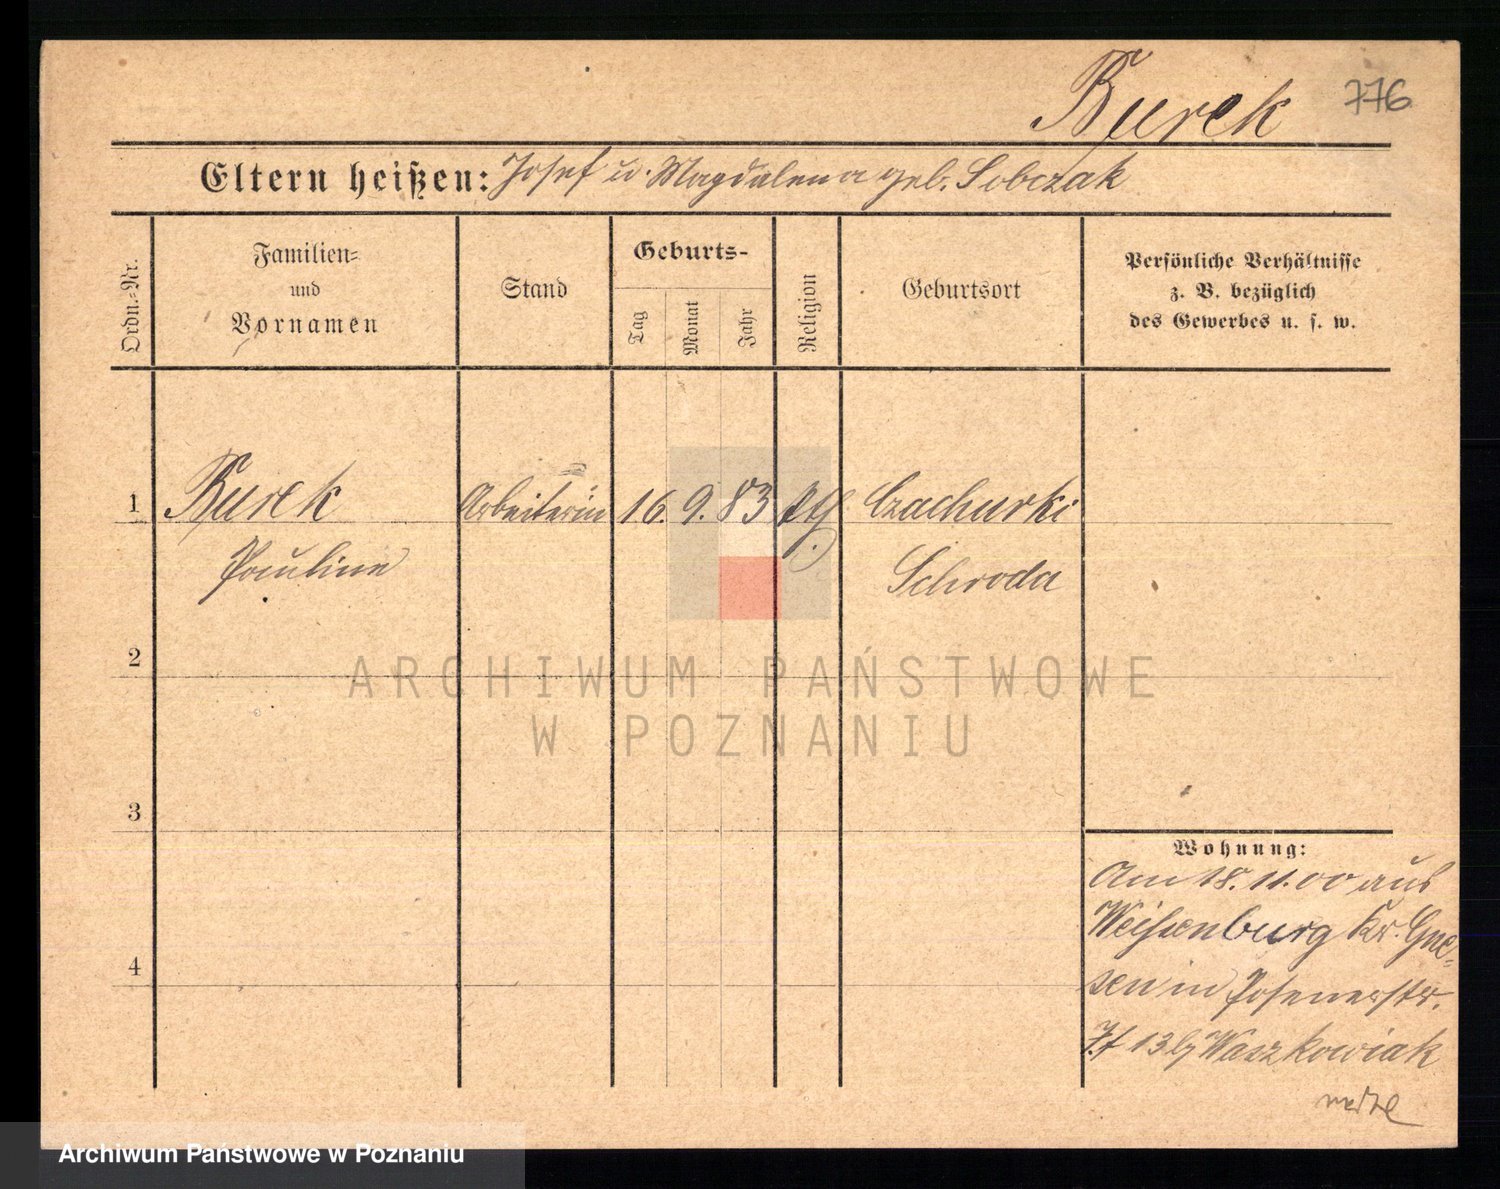 Burek 776
Eltern heißen: Josef u. Magdalena geb. Sobczak
Ordn.-Nr.
Familien-
und
Vornamen
Stand
Geburts-
Tag
Monat
Jahr
Religion
Geburtsort
Persönliche Verhältnisse
z. B. bezüglich
des Gewerbes u. s. w.
1 Burek Arbeiterin 16. 9. 83 Czachurki
Pauline Schroda
2
ARCHIWUM PAŃSTWOWE
W POZNANIU
3
Wohnung:
Am 18.11.00 aus
Weißenburg Kr. Gne-
4
sen in Posenerstr.
13 Waszkowiak
Archiwum Państwowe w Poznaniu